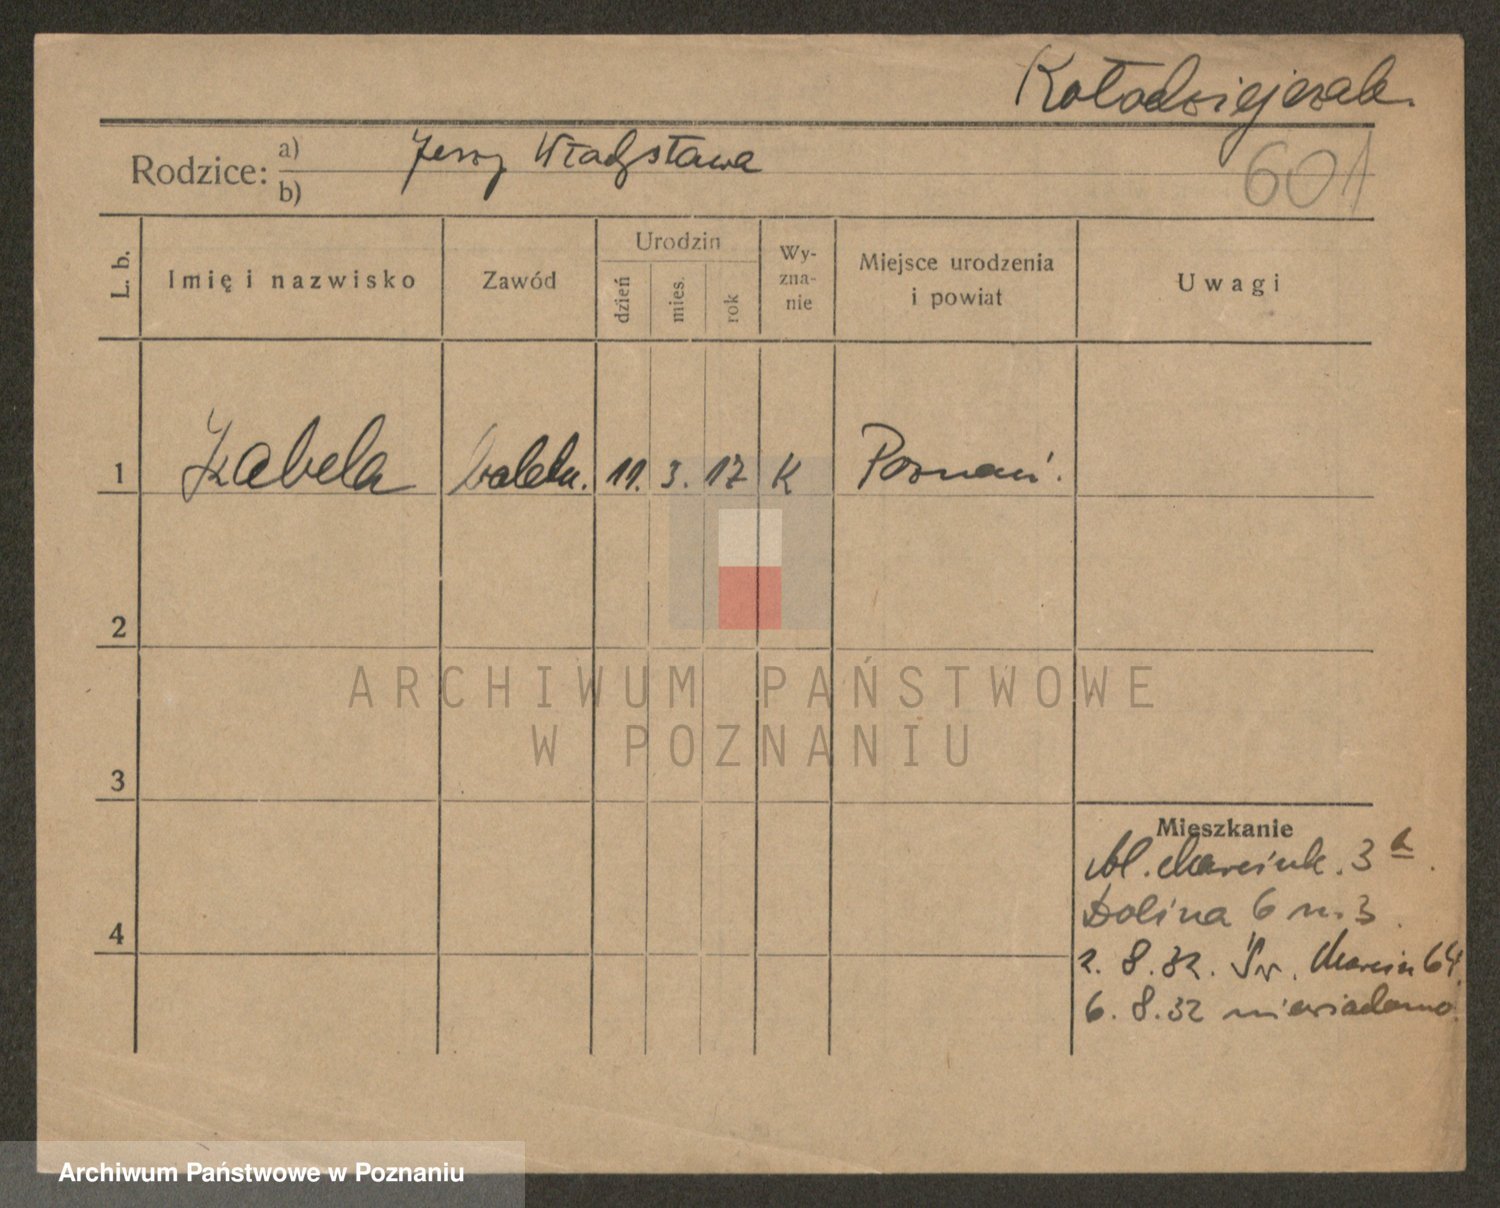 Kołodziejczak.
Rodzice: a) Jerzy Władysława
b)
601
L. b.
Imię i nazwisko
Zawód
Urodzin
dzień
mies.
rok
Wy-
zna-
nie
Miejsce urodzenia
i powiat
Uwagi
1 Izabela baletn. 11. 3. 17 K Poznań.
2
3
4
ARCHIWUM PAŃSTWOWE
W POZNANIU
Mieszkanie
Al. Marcink. 3a.
Dolina 6 m. 3.
2. 8. 32. Św. Marcin 64.
6. 8. 32 niewiadomo.
Archiwum Państwowe w Poznaniu